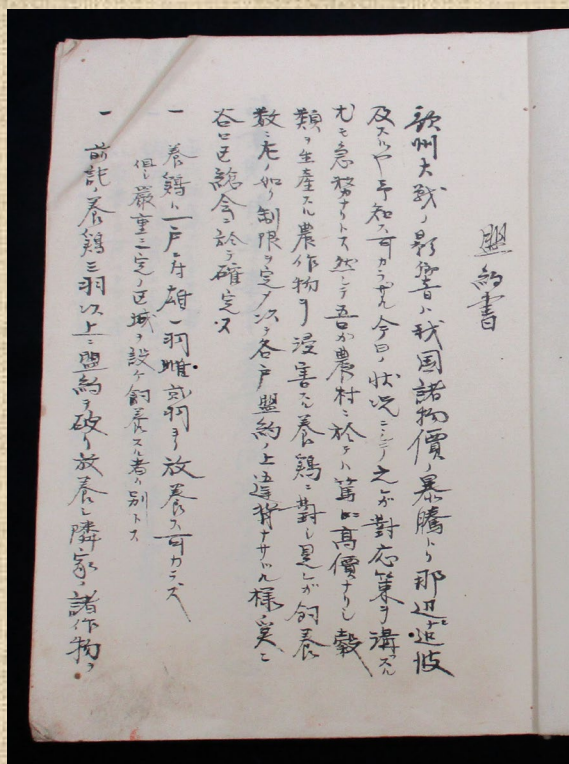 盟約書
欧州大戦ノ影響ハ我国諸物價ノ暴騰トナリ那辺ニ迄波
及スルヤ予知ス可カラザル今日ノ状況ニシテ之ガ対応策ヲ講スル
尤モ急務ナリトス然シテ吾ガ農村ニ於テハ高價ナリシ穀
類ヲ生産スル農作物ヲ侵害スル養鶏ニ対シ是レガ飼養
数ニ左ノ如ク制限ヲ定メ各戸盟約ノ上違背ナサヾル様
谷口区総会ニ於テ確定ス
一 養鶏ハ一戸ニ付雄一羽雌弐羽ヨリ放養ス可カラズ
但シ厳重ニ一定ノ区域ヲ設ケ飼養スル者ハ別トス
一 前記ノ養鶏三羽以上ニ盟約ヲ破リ放養シ隣家ノ諸作物ヲ